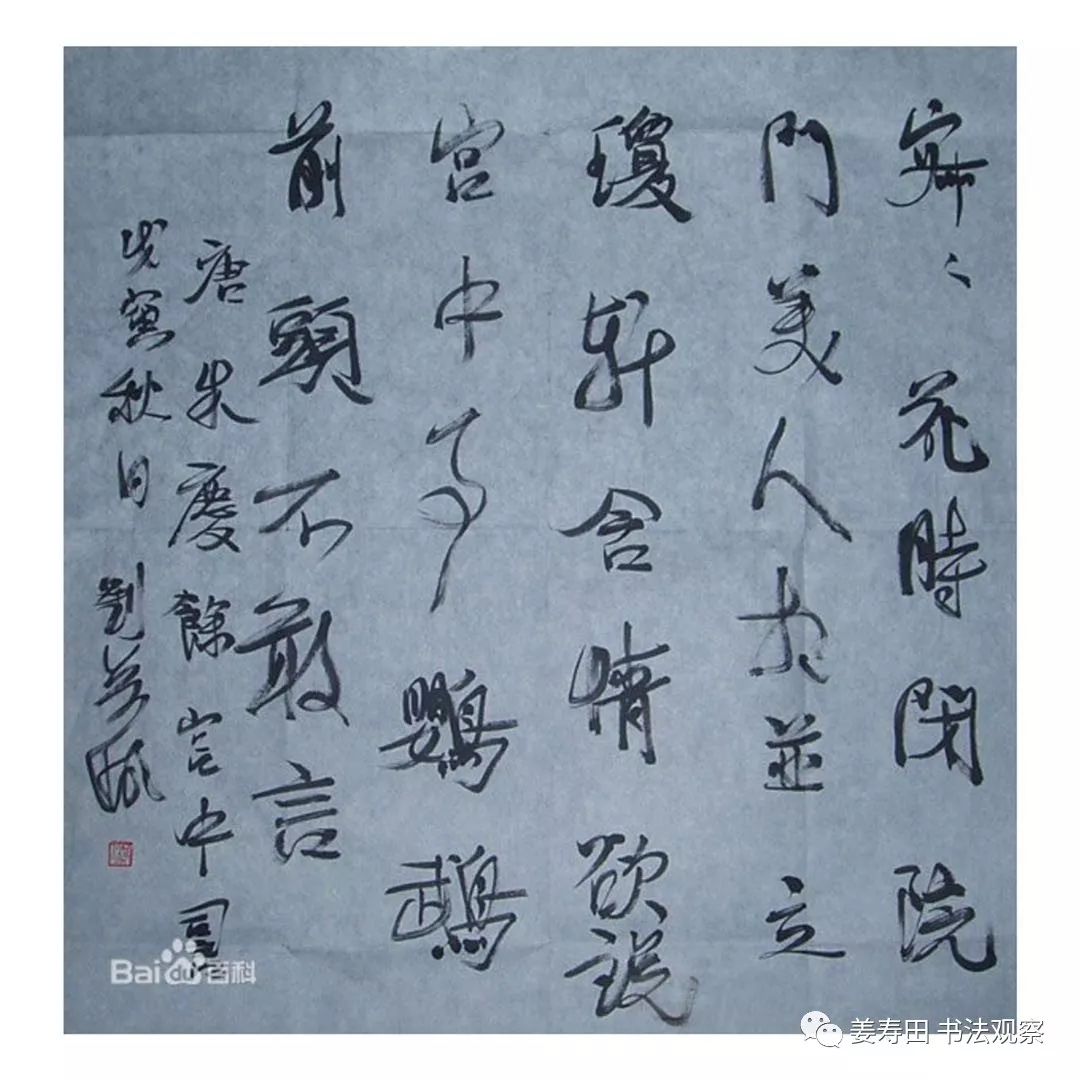 寂〻花時閉院
門美人相並立
瓊軒含情欲説
宮中事鸚鵡
前頭不敢言
唐朱慶餘宮中詞
戊寅秋日 劉
Baidu百科
姜寿田 书法观察